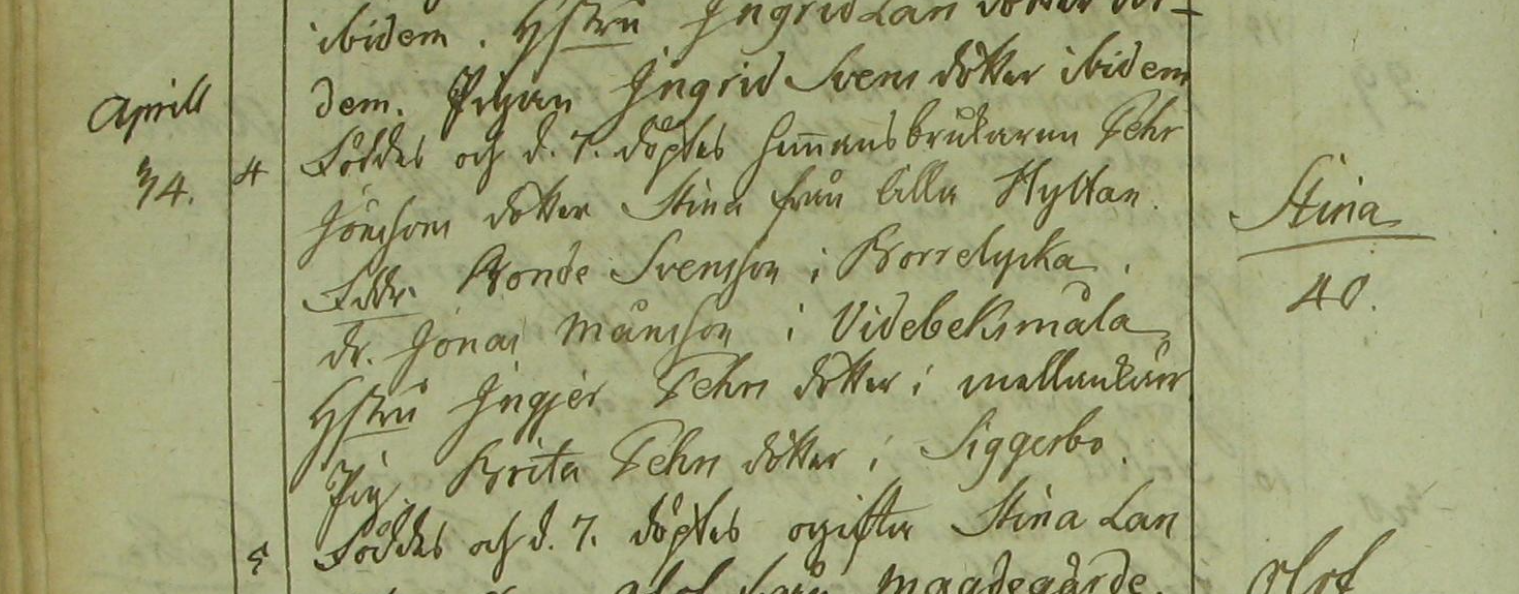 ibidem. Hstru Ingrid Lars dotter ibi-
dem. Pigan Ingrid Svens dotter ibidem
Aprill
34.
4
Föddes och d. 7. döptes hemansbrukaren Pehr
Jönssons dotter Stina från lilla Hyltan.
Stina
40.
Fddr. Bonde Svensson i Borrelycka.
dr. Jonas Månsson i Videbeksmåla
Hstru Ingjer Pehrs dotter i mellankärr
Pig. Brita Pehrs dotter i Siggerbo.
5
Föddes och d. 7. döptes ogifta Stina Lars
Maadegårde.
Olof